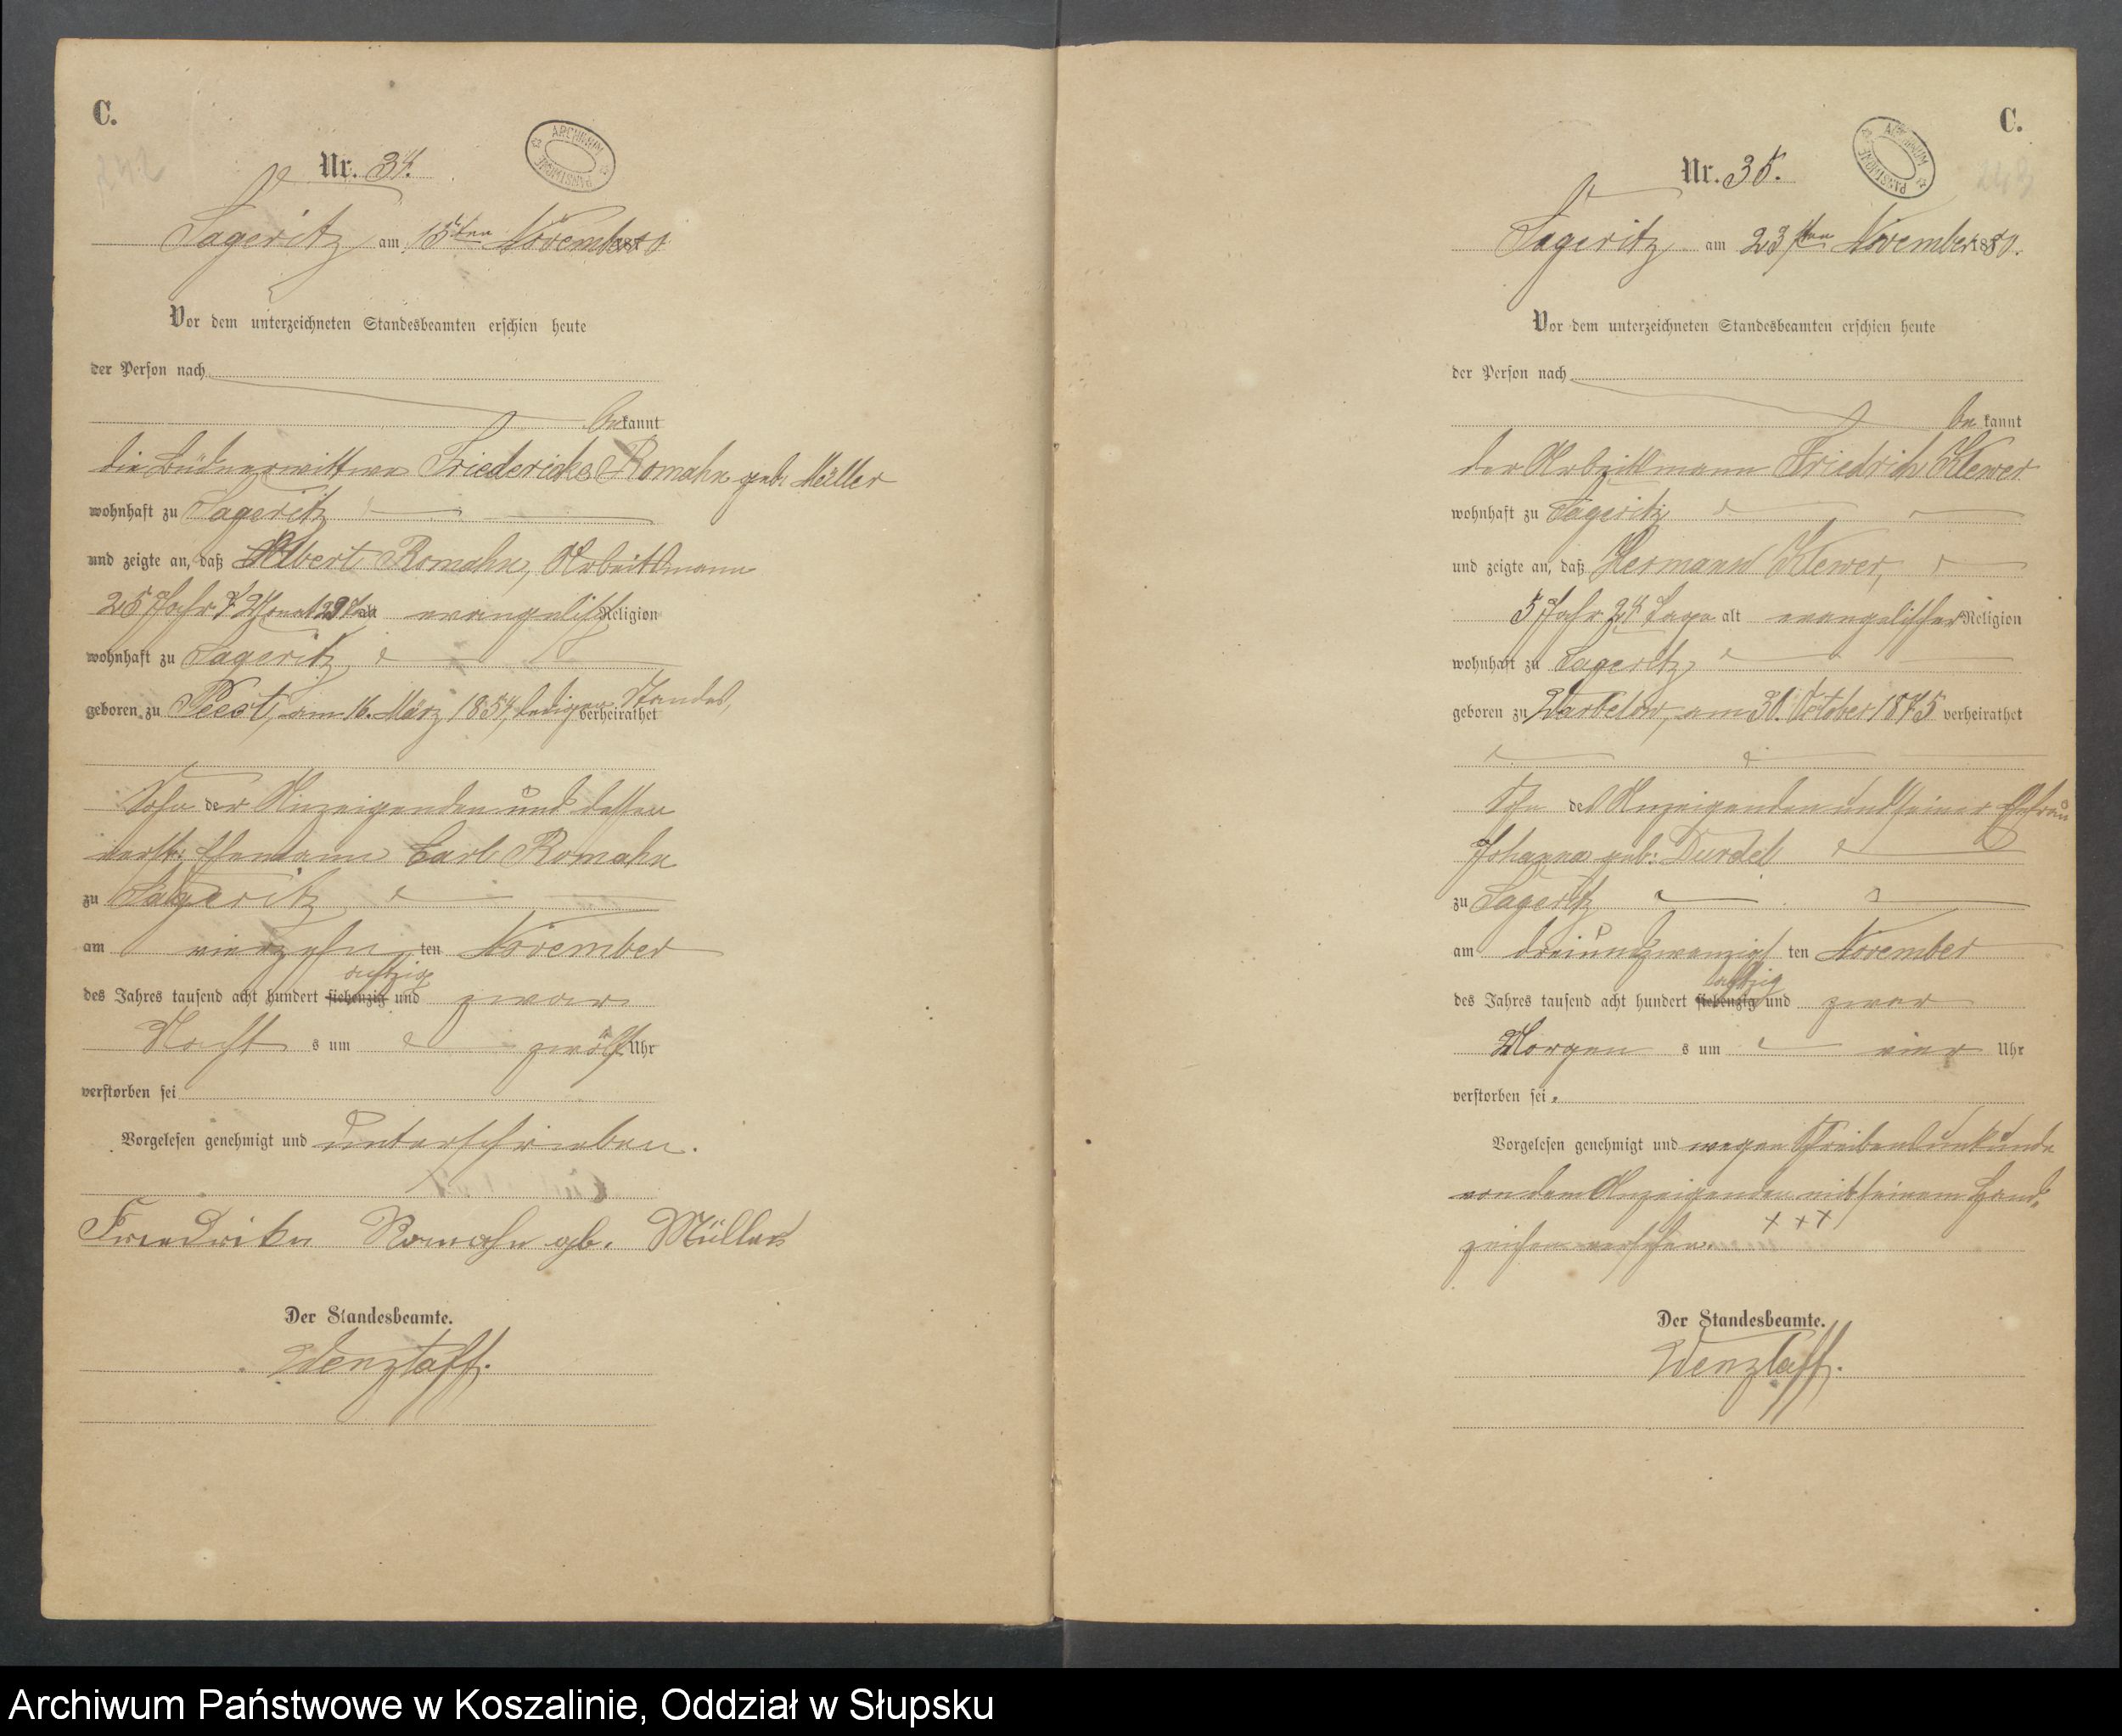 C.
Nr. 34.
ARCHIWUM PAŃSTWOWE
Lageritz am 15ten November 1880
Vor dem unterzeichneten Standesbeamten erschien heute
der Person nach
bekannt
die Büdnerwittwe Friedericke Romahn geb. Müller
wohnhaft zu Lageritz
und zeigte an, daß Albert Romahn, Arbeitsmann
alt evangelischer Religion
wohnhaft zu Lageritz
geboren zu Peest, am 16. März 1854, ledigen Standes, verheirathet
Sohn der Anzeigenden und dessen
verst. Ehemann Carl Romahn
zu Lageritz
am vierzehn ten November
des Jahres tausend acht hundert siebenzig achtzig und zwar
Nacht s um zwölf Uhr
verstorben sei
Vorgelesen genehmigt und unterschrieben.
Friedrike Romahn geb. Müller
Der Standesbeamte.
Wenzlaff.
C.
Nr. 35.
ARCHIWUM PAŃSTWOWE
Lageritz am 23ten November 1880.
Vor dem unterzeichneten Standesbeamten erschien heute
der Person nach
bekannt
der Arbeitsmann Friedrich Klewer
wohnhaft zu Lageritz
und zeigte an, daß Hermann Klewer,
5 Jahr 24 Tage alt evangelischer Religion
wohnhaft zu Lageritz
geboren zu Warbelow, am 30. October 1875 verheirathet
Sohn des Anzeigenden und seiner Ehefrau
Johanna geb.
zu Lageritz
am dreiundzwanzigs ten November
des Jahres tausend acht hundert siebenzig achtzig und zwar
Morgen s um vier Uhr
verstorben sei.
Vorgelesen genehmigt und wegen Schreibensunkunde
von dem Anzeigenden mit seinem Hand-
zeichen versehen. + + +
Der Standesbeamte.
Wenzlaff.
Archiwum Państwowe w Koszalinie, Oddział w Słupsku